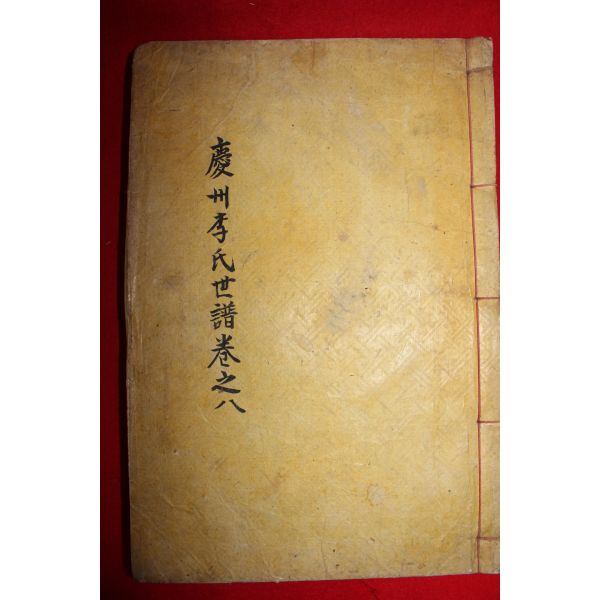 慶州李氏世譜卷之八